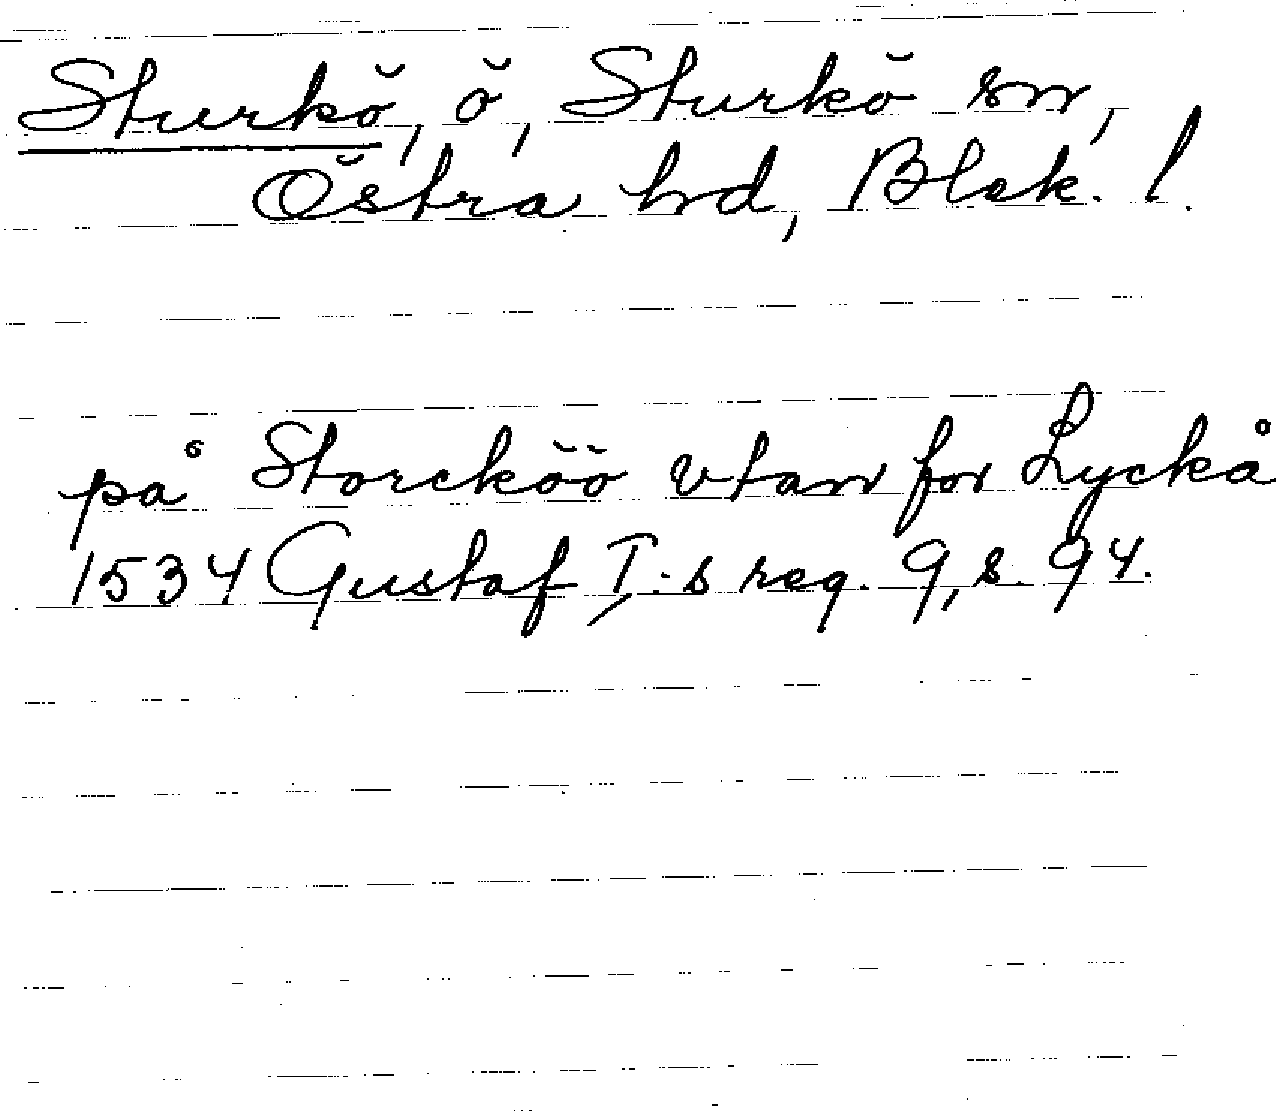 Sturkö, ö, Sturkö sn,
Östra hd, Blek. l.
på Storcköö vtan for Lyckå
1534 Gustaf I:s reg. 9, s. 94.